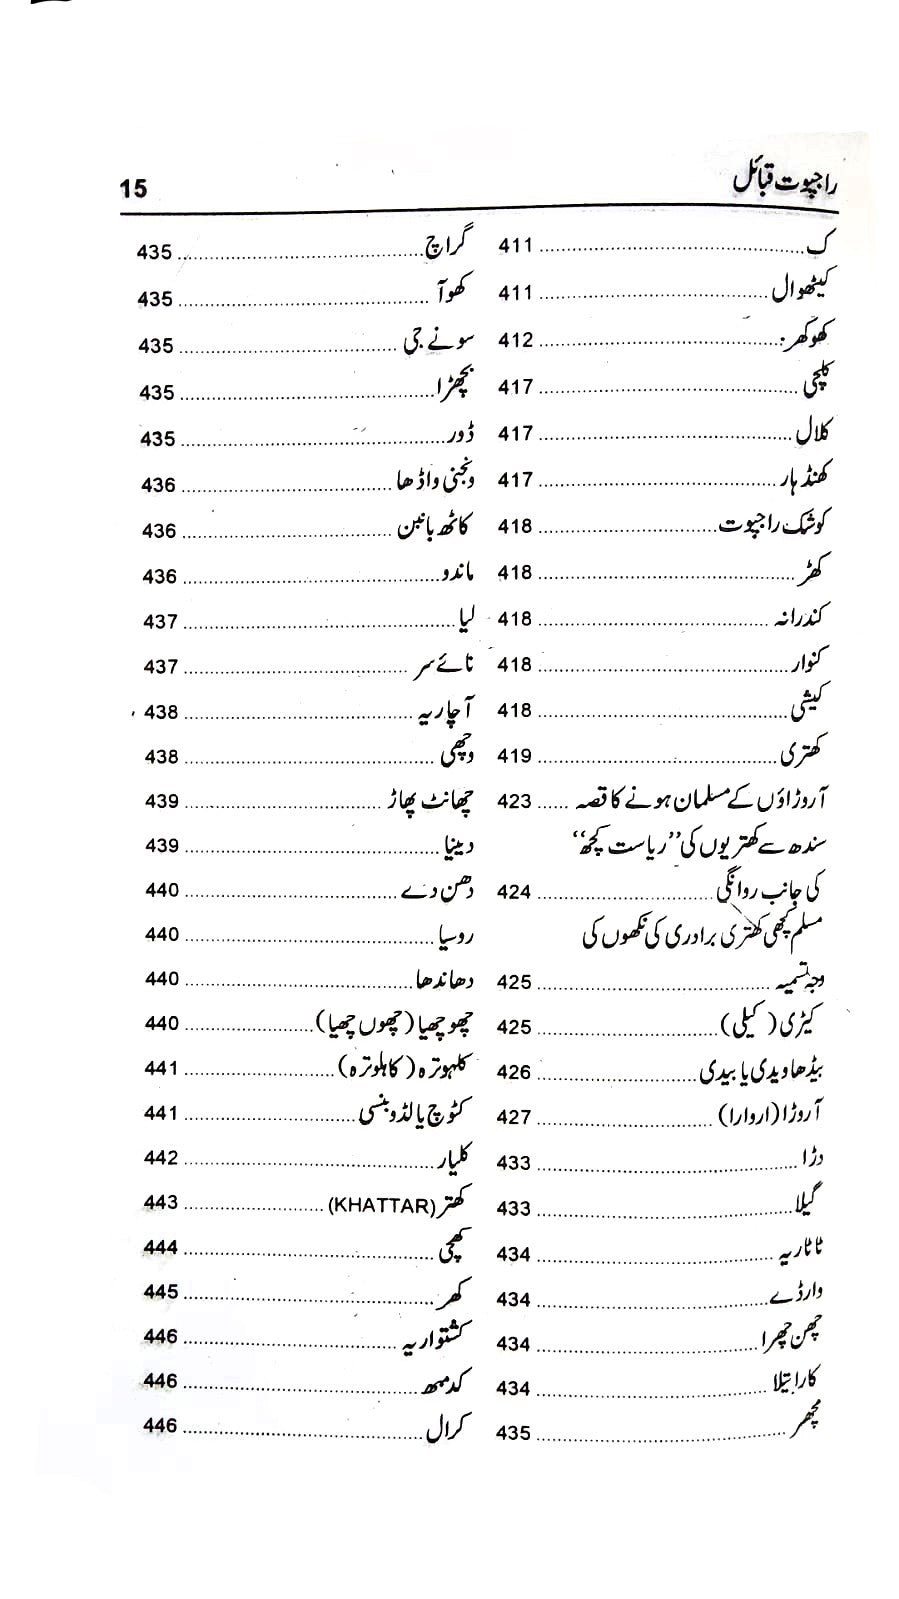 راجپوت قبائل 15
ک 411
کیٹھوال 411
کھوکھر: 412
کلچی 417
کلال 417
کھنڈہار 417
کوشک راجپوت 418
کھڑ 418
کندرانہ 418
کنوار 418
کیشی 418
کھتری 419
آروڑاؤں کے مسلمان ہونے کا قصہ 423
سندھ سے کھتریوں کی ”ریاست کچھ“
کی جانب روانگی 424
مسلم کچھی کھتری برادری کی نکھوں کی
وجہ تسمیہ 425
کیڑی (کیلی) 425
بیڈھا ویدی یا بیدی 426
آروڑا (اروارا) 427
دڑا 433
گیلا 433
ٹاٹاریہ 434
وارڈے 434
چھن چھرا 434
کارا بتلا 434
مچھر 435
گراچ 435
کھوآ 435
سونے جی 435
بچھڑا 435
ڈور 435
ونجنی واڈھا 436
کاٹھ بانین 436
ماندو 436
لیا 437
نائے سر 437
آچاریہ 438
وچھی 438
چھانٹ پھاڑ 439
دینیا 439
دھن دے 440
روسیا 440
دھاندھا 440
چھوچھیا (چھوں چھیا) 440
کلہوترہ (کاہلوترہ) 441
کٹوچ یا لڈوبنسی 441
کلیار 442
کھتر (KHATTAR) 443
کھچی 444
کھر 445
کشتواریہ 446
کدمبھ 446
کرال 446